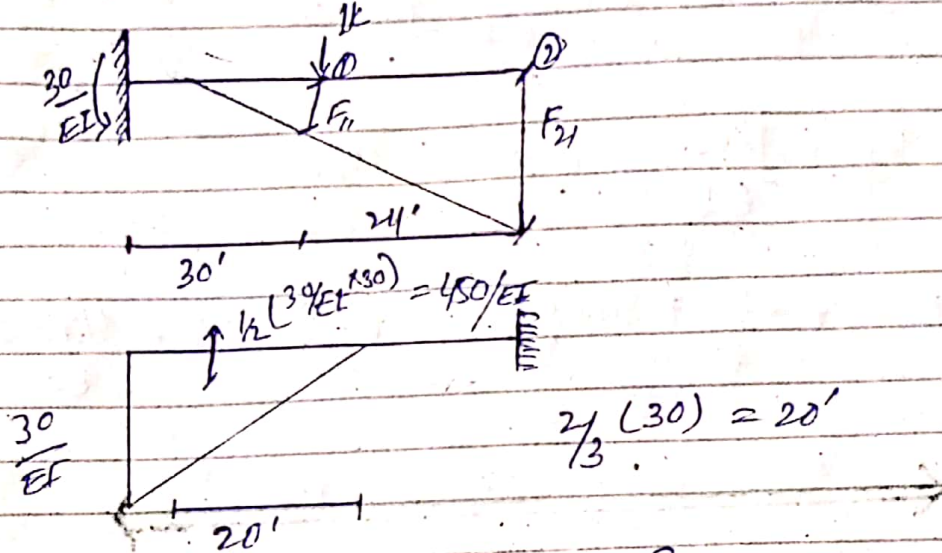 1k
30/EI
①
②
F11
F21
24'
30'
1/2 (30/EI × 30) = 450/EI
30/EI
2/3 (30) = 20'
20'